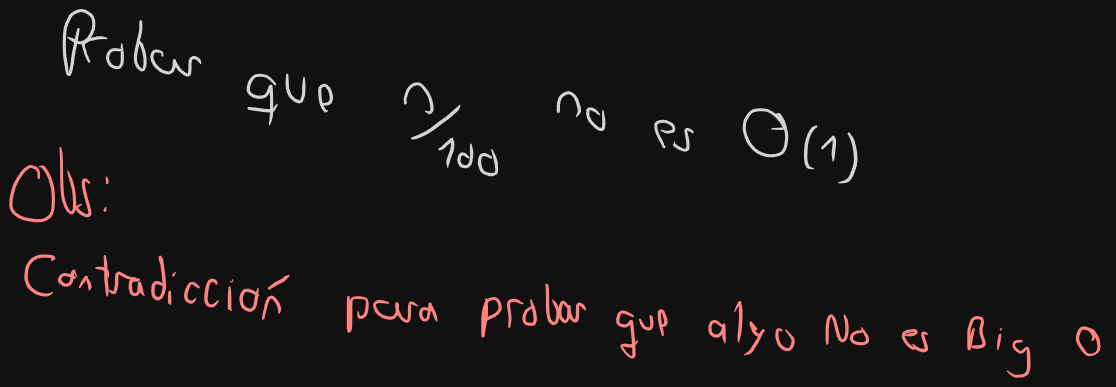 Probar que n/100 no es O(1)
Obs:
Contradicción para probar que algo No es Big O